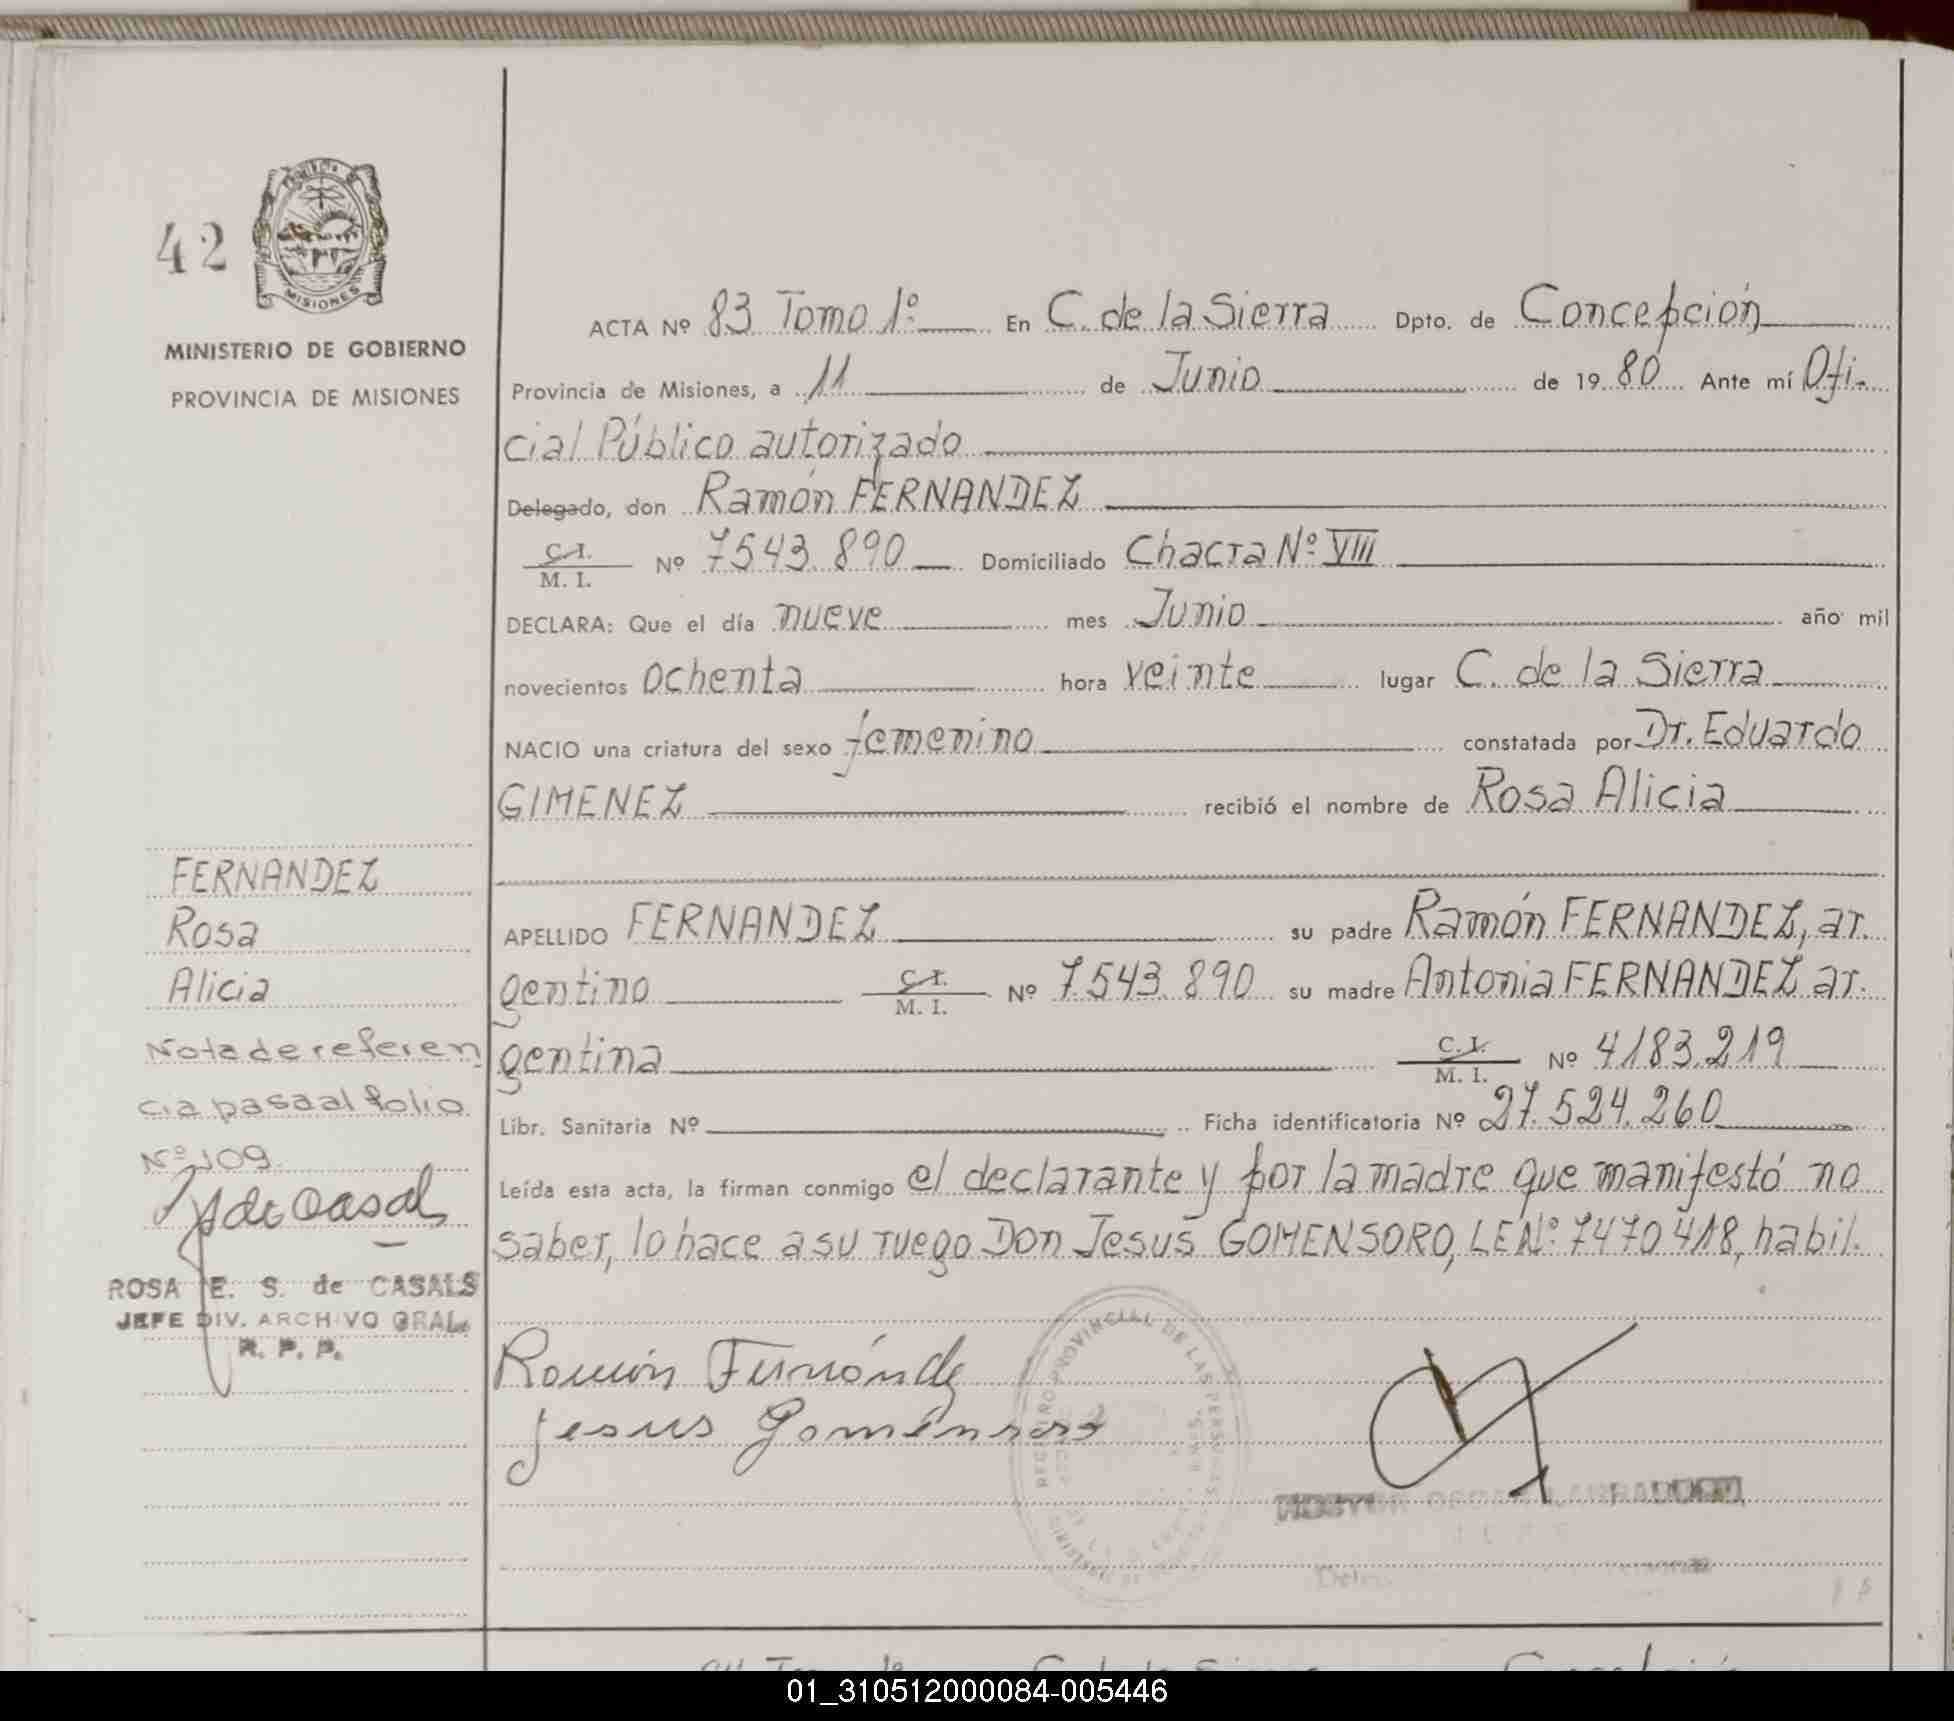 42
MISIONES
MINISTERIO DE GOBIERNO
PROVINCIA DE MISIONES
ACTA Nº 83 Tomo 1º En C. de la Sierra Dpto. de Concepción
Provincia de Misiones, a 11 de Junio de 19 80 Ante mí Ofi-
cial Público autorizado
Delegado, don Ramón FERNANDEZ
C.I. / M. I. Nº 7543.890 Domiciliado Chacra Nº VIII
DECLARA: Que el día nueve mes Junio año mil
novecientos ochenta hora veinte lugar C. de la Sierra
NACIO una criatura del sexo femenino constatada por Dr. Eduardo
GIMENEZ recibió el nombre de Rosa Alicia
APELLIDO FERNANDEZ su padre Ramón FERNANDEZ, ar.
gentino C.I. / M. I. Nº 7.543.890 su madre Antonia FERNANDEZ ar.
gentina C.I. / M. I. Nº 4183.219
Libr. Sanitaria Nº Ficha identificatoria Nº 27.524.260
Leída esta acta, la firman conmigo el declarante y por la madre que manifestó no
saber, lo hace a su ruego Don Jesus GOMENSORO, LE.Nº 7470418, habil.
FERNANDEZ
Rosa
Alicia
Nota de referen
cia pasa al folio
Nº 109.
ROSA E. S. de CASALS
JEFE DIV. ARCHIVO GRAL.
R. P. P.
Ramón Fernández
Jesus Gomensoro
REGISTRO PROVINCIAL DE LAS PERSONAS
01_310512000084-005446